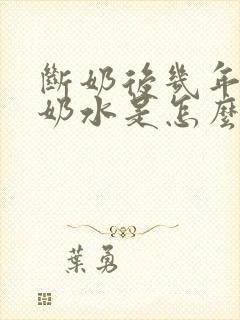 斷奶後幾年
奶水是怎麼
葉勇